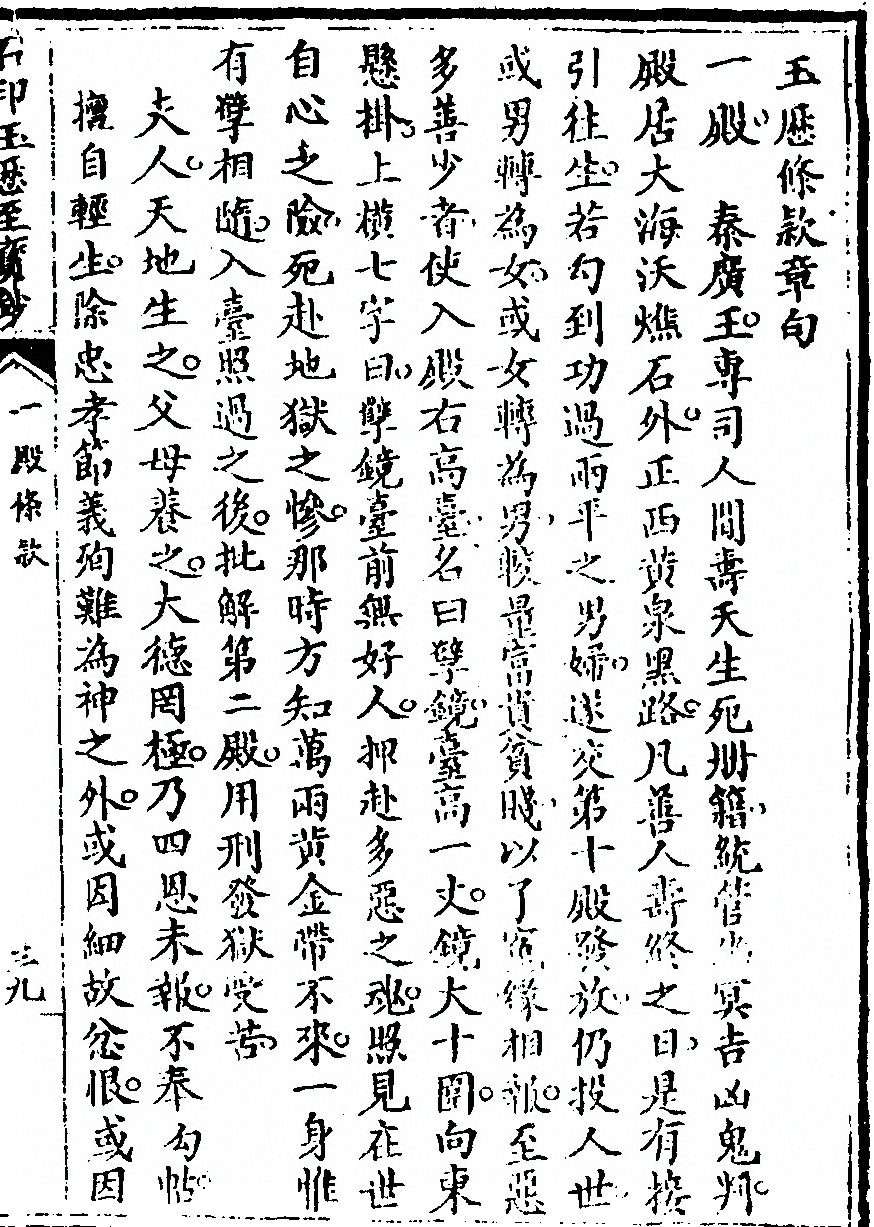 玉歷條款章句
一殿 秦廣王專司人間壽夭生死册籍統管幽冥吉凶鬼判
殿居大海沃燋石外正西黃泉黑路凡善人壽終之日是有接
引往生若勾到功過兩平之男婦送交第十殿發放仍投人世
或男轉為女或女轉為男較量富貴貧賤以了寃緣相報至惡
多善少者使入殿右高臺名曰孽鏡臺高一丈鏡大十圍向東
懸掛上橫七字曰孽鏡臺前無好人押赴多惡之魂照見在世
自心之險死赴地獄之慘那時方知萬兩黃金帶不來一身惟
有孽相隨入臺照過之後批解第二殿用刑發獄受苦
夫人天地生之父母養之大德罔極乃四恩未報不奉勾帖
擅自輕生除忠孝節義殉難為神之外或因細故忿恨或因
石印玉歷至寶鈔
一殿條款
三九